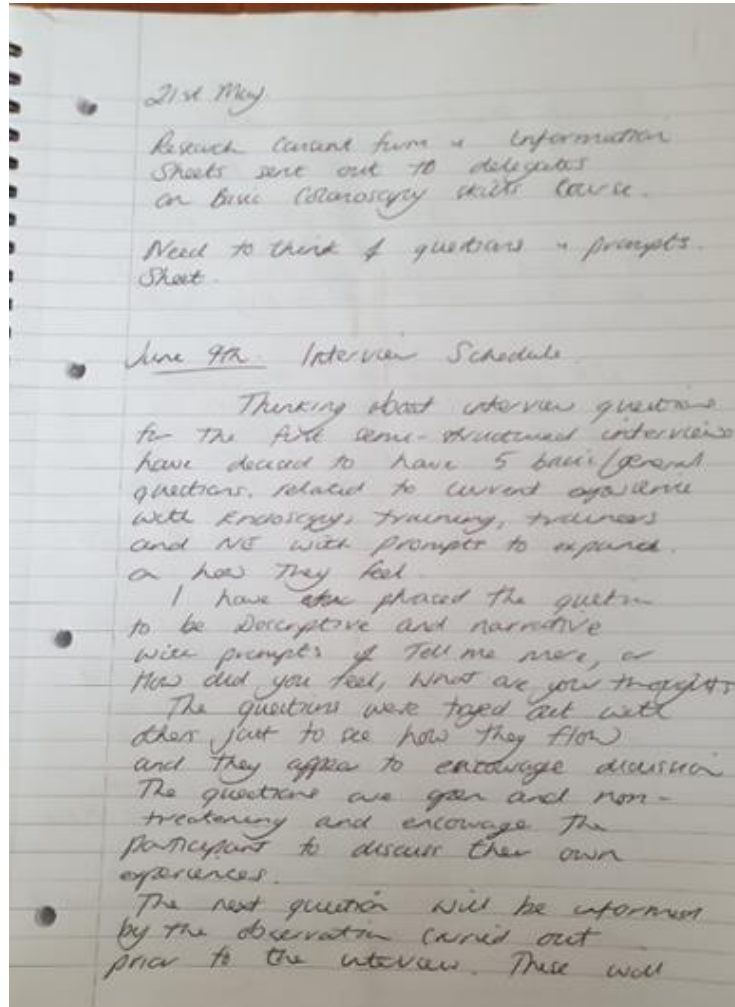 21st May.
Research Consent form & Information
Sheets sent out to delegates
on Basic Colonoscopy skills Course.
Need to think of questions & prompts.
Sheet.
June 9th. Interview Schedule
Thinking about interview questions
for the first semi-structured interviews
have decided to have 5 basic/general
questions. related to current experience
with Endoscopy, training, trainers
and NE with prompts to expand.
on how they feel.
I have phased the question
to be Descriptive and narrative
with prompts of Tell me more, or
How did you feel, What are your thoughts
The questions were tryed out with
others just to see how they flow
and they appear to encourage discussion
The questions are open and non-
treatening and encourage the
participant to discuss their own
experiences.
The next question will be informed
by the observation carried out
prior to the interview. These will